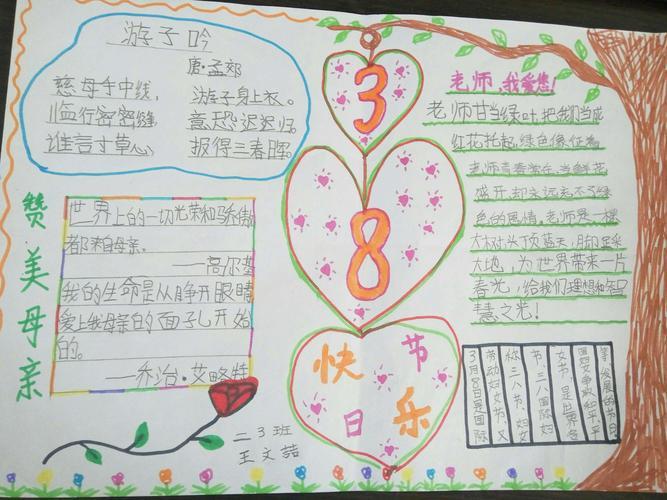 游子吟
唐·孟郊
慈母手中线，游子身上衣。
临行密密缝，意恐迟迟归。
谁言寸草心，报得三春晖。
赞美母亲
世界上的一切光荣和骄傲
都来自母亲。
——高尔基
我的生命是从睁开眼睛
爱上我母亲的面孔开始
的。
——乔治·艾略特
二3班
王文喆
3
8
快节
日乐
老师，我爱您！
老师甘当绿叶，把我们当成
红花托起，绿色像征着
老师青春常在，当鲜花
盛开，却永远忘不了绿
色的恩情，老师是一棵
大树头顶蓝天，脚踩
大地，为世界带来一片
春光，给我们理想和知识
慧之光！
3月8日是国际
劳动妇女节、又
称三八节、妇女
节、三八国际妇
女节。是世界各
国妇女争取和平、平
等、发展的节日